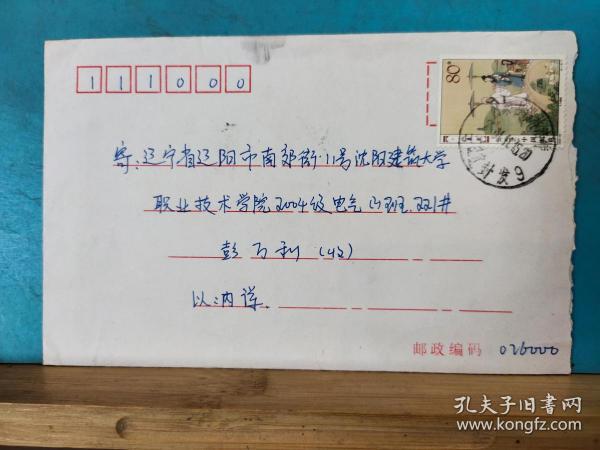 111000
80分
寄:辽宁省辽阳市南郊街·11号沈阳建筑大学
职业技术学院2004级电气
彭万利(收)
内详.
邮政编码 026000
孔夫子旧书网
www.kongfz.com